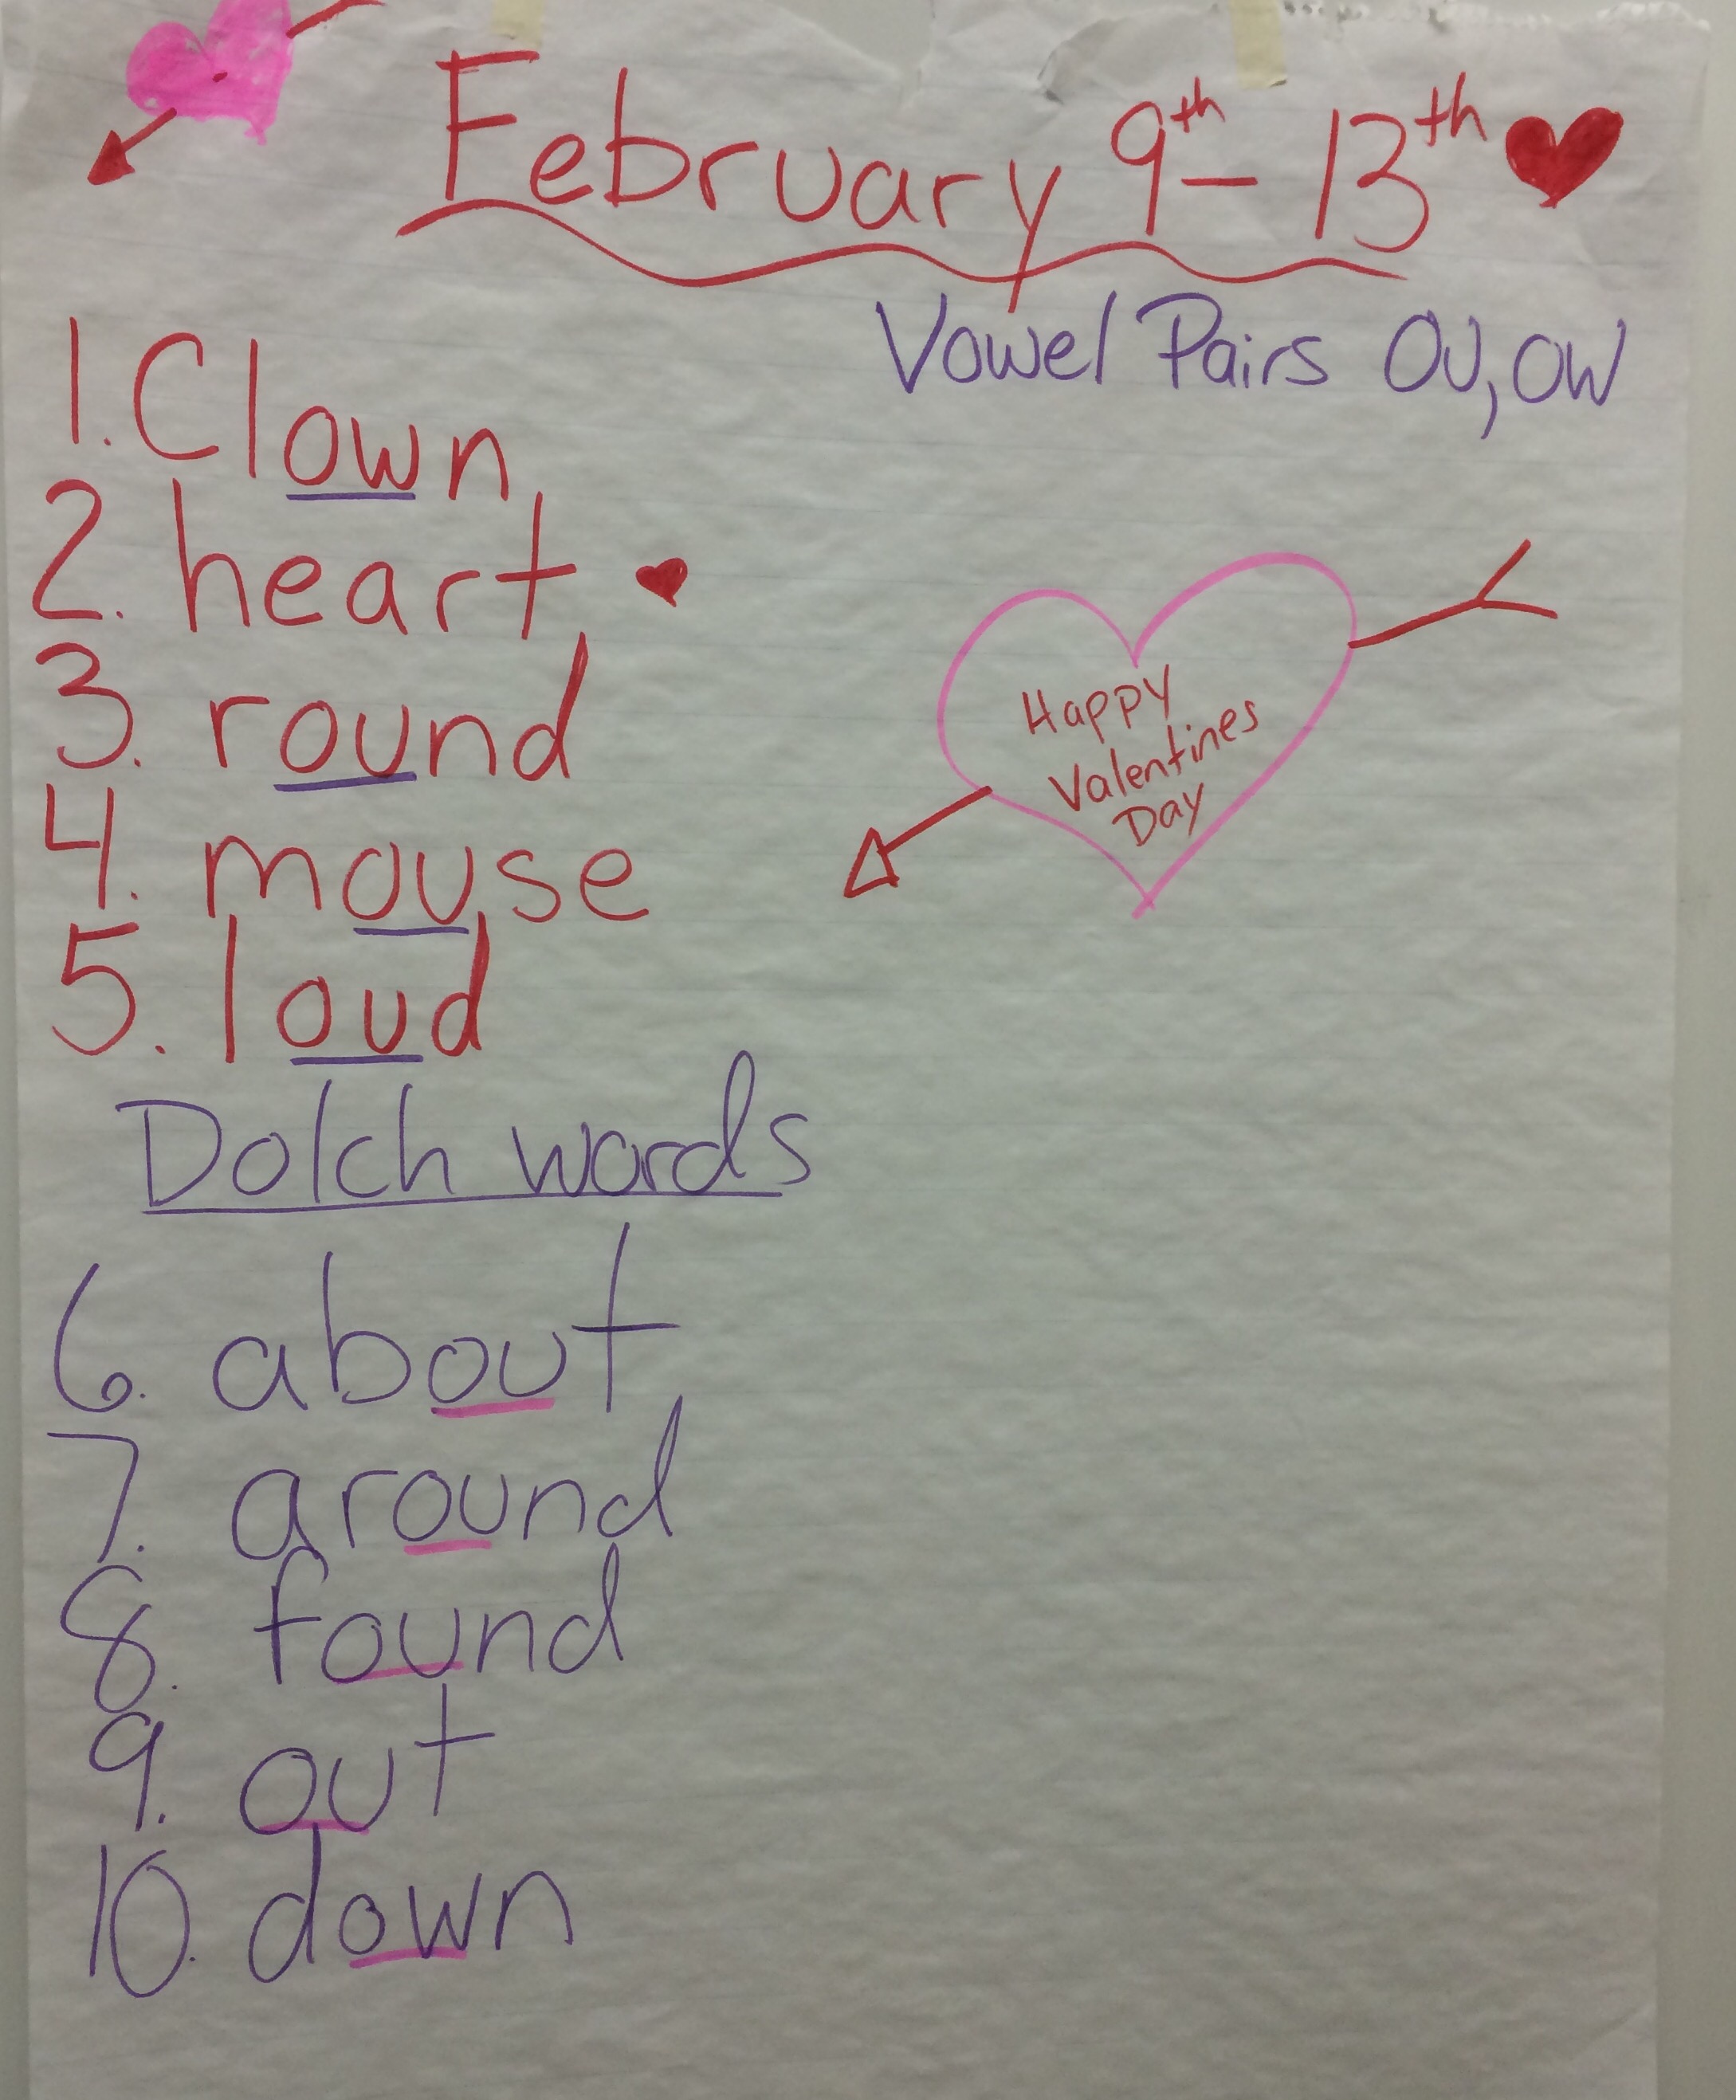 February 9th - 13th
Vowel Pairs OU, OW
1. Clown
2. heart
3. round
4. mouse
5. loud
Happy
Valentines
Day
Dolch words
6. about
7. around
8. found
9. out
10. down